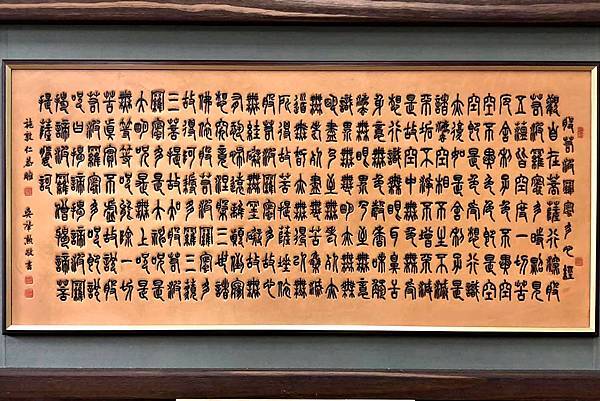 般若波羅蜜多心經
觀自在菩薩行深般
若波羅蜜多時照見
五蘊皆空度一切苦
厄舍利子色不異空
空不異色色即是空
空即是色受想行識
亦復如是舍利子是
諸法空相不生不滅
不垢不淨不增不減
是故空中無色無受
想行識無眼耳鼻舌
身意無色聲香味觸
法無眼界乃至無意
識界無無明亦無無
明盡乃至無老死亦
無老死盡無苦集滅
道無智亦無得以無
所得故菩提薩埵依
般若波羅蜜多故心
無罣礙無罣礙故無
有恐怖遠離顛倒夢
想究竟涅槃三世諸
佛依般若波羅蜜多
故得阿耨多羅三藐
三菩提故知般若波
羅蜜多是大神咒是
大明咒是無上咒是
無等等咒能除一切
苦真實不虛故說般
若波羅蜜多咒即說
咒曰揭諦揭諦波羅
揭諦波羅僧揭諦菩
提薩婆訶
敬書